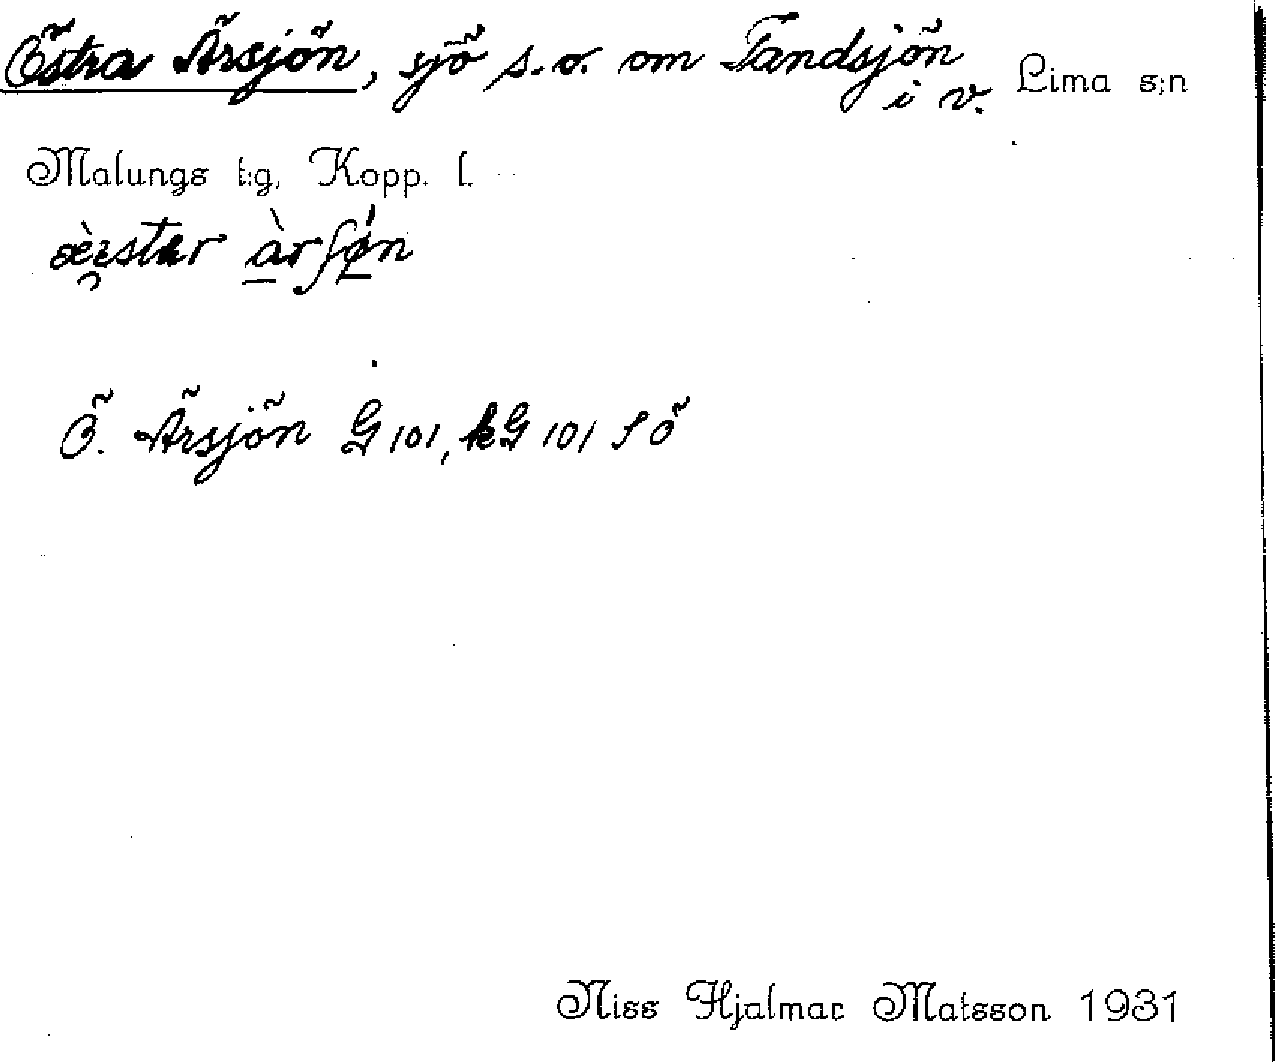 Östra Ärsjön, sjö s.o. om Tandsjön i v. Lima s:n
Malungs t:g, Kopp. l.
Ö. Ärsjön G 101, kG 101 SÖ
Niss Hjalmar Matsson 1931